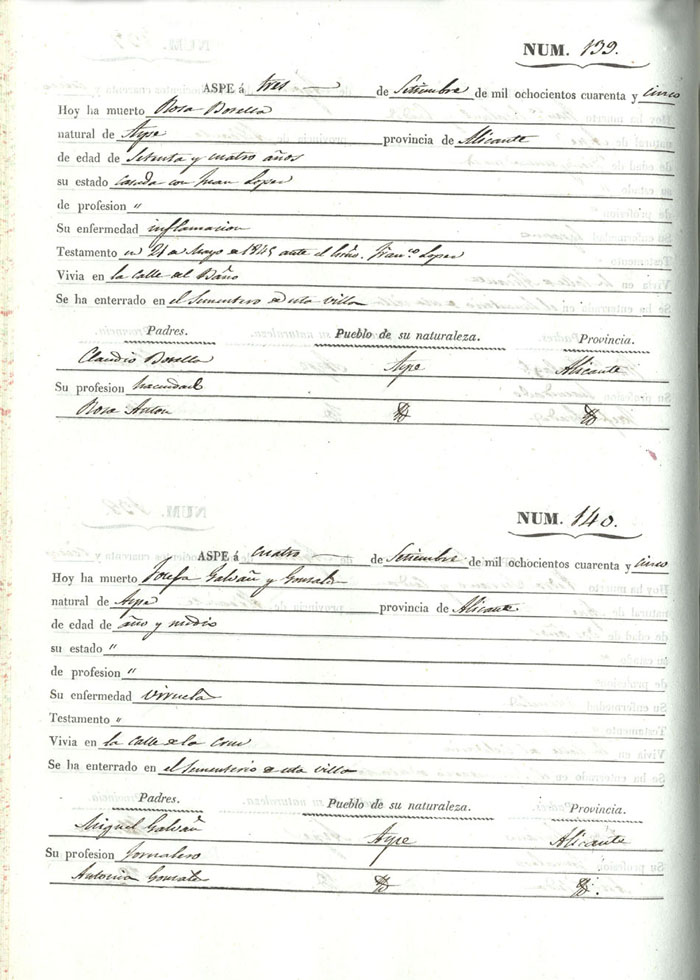 NUM. 139.
ASPE á tres de Setiembre de mil ochocientos cuarenta y cinco
Hoy ha muerto Rosa Borella
natural de Aspe provincia de Alicante
de edad de Setenta y cuatro años
su estado casada con Juan Lopez
de profesion "
Su enfermedad inflamacion
Testamento en 21 de Mayo de 1845 ante el Franco. Lopez
Vivia en la calle del Baño
Se ha enterrado en el Sementerio de esta villa
Padres. Pueblo de su naturaleza. Provincia.
Claudio Borella Aspe Alicante
Su profesion hacendado
Rosa Anton
NUM. 140.
ASPE á cuatro de Setiembre de mil ochocientos cuarenta y cinco
Hoy ha muerto Josefa Galvañ y Gonzalez
natural de Aspe provincia de Alicante
de edad de año y medio
su estado "
de profesion "
Su enfermedad virruela
Testamento "
Vivia en la calle de la Cruz
Se ha enterrado en el Sementerio de esta villa
Padres. Pueblo de su naturaleza. Provincia.
Miguel Galvañ Aspe Alicante
Su profesion Jornalero
Antonia Gonzalez